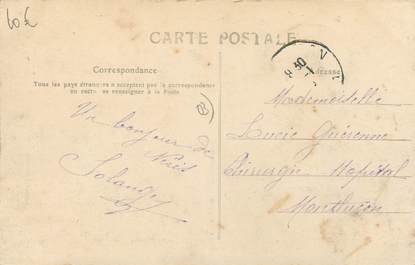 60€
CARTE POSTALE
Correspondance
Adresse
Tous les pays étrangers n'acceptent pas la correspondance
au recto se renseigner à la Poste
Un bonjour de
Néris
Solange
Mademoiselle
Lucie
Chirurgie Hôpital
Montluçon